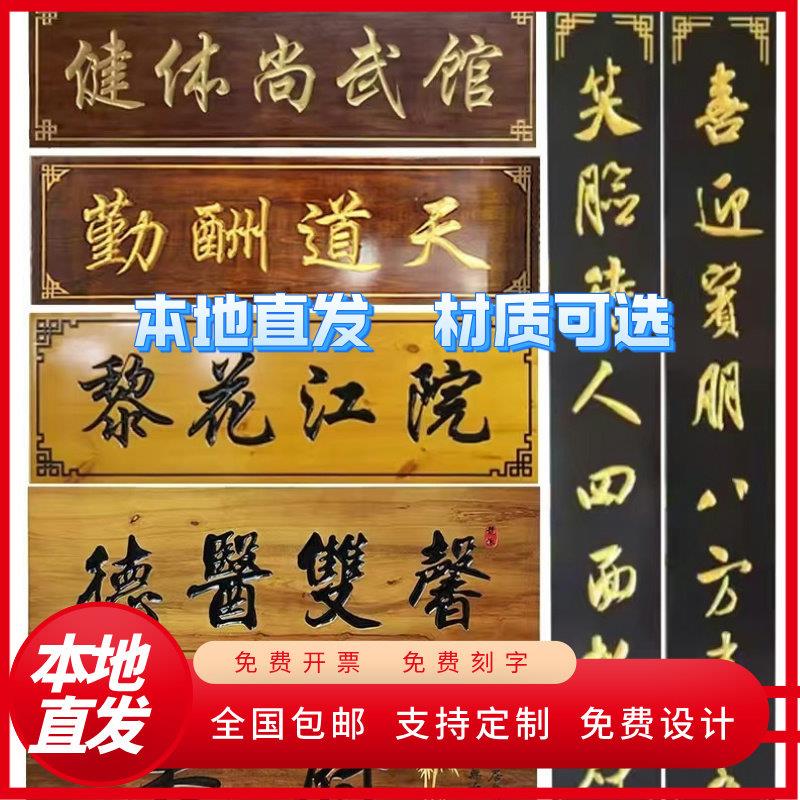 健体尚武馆
勤酬道天
本地直发 材质可选
黎花江院
德醫雙馨
喜迎賓朋八方
笑脸
人四面
本地
直发
免费开票 免费刻字
全国包邮 支持定制 免费设计